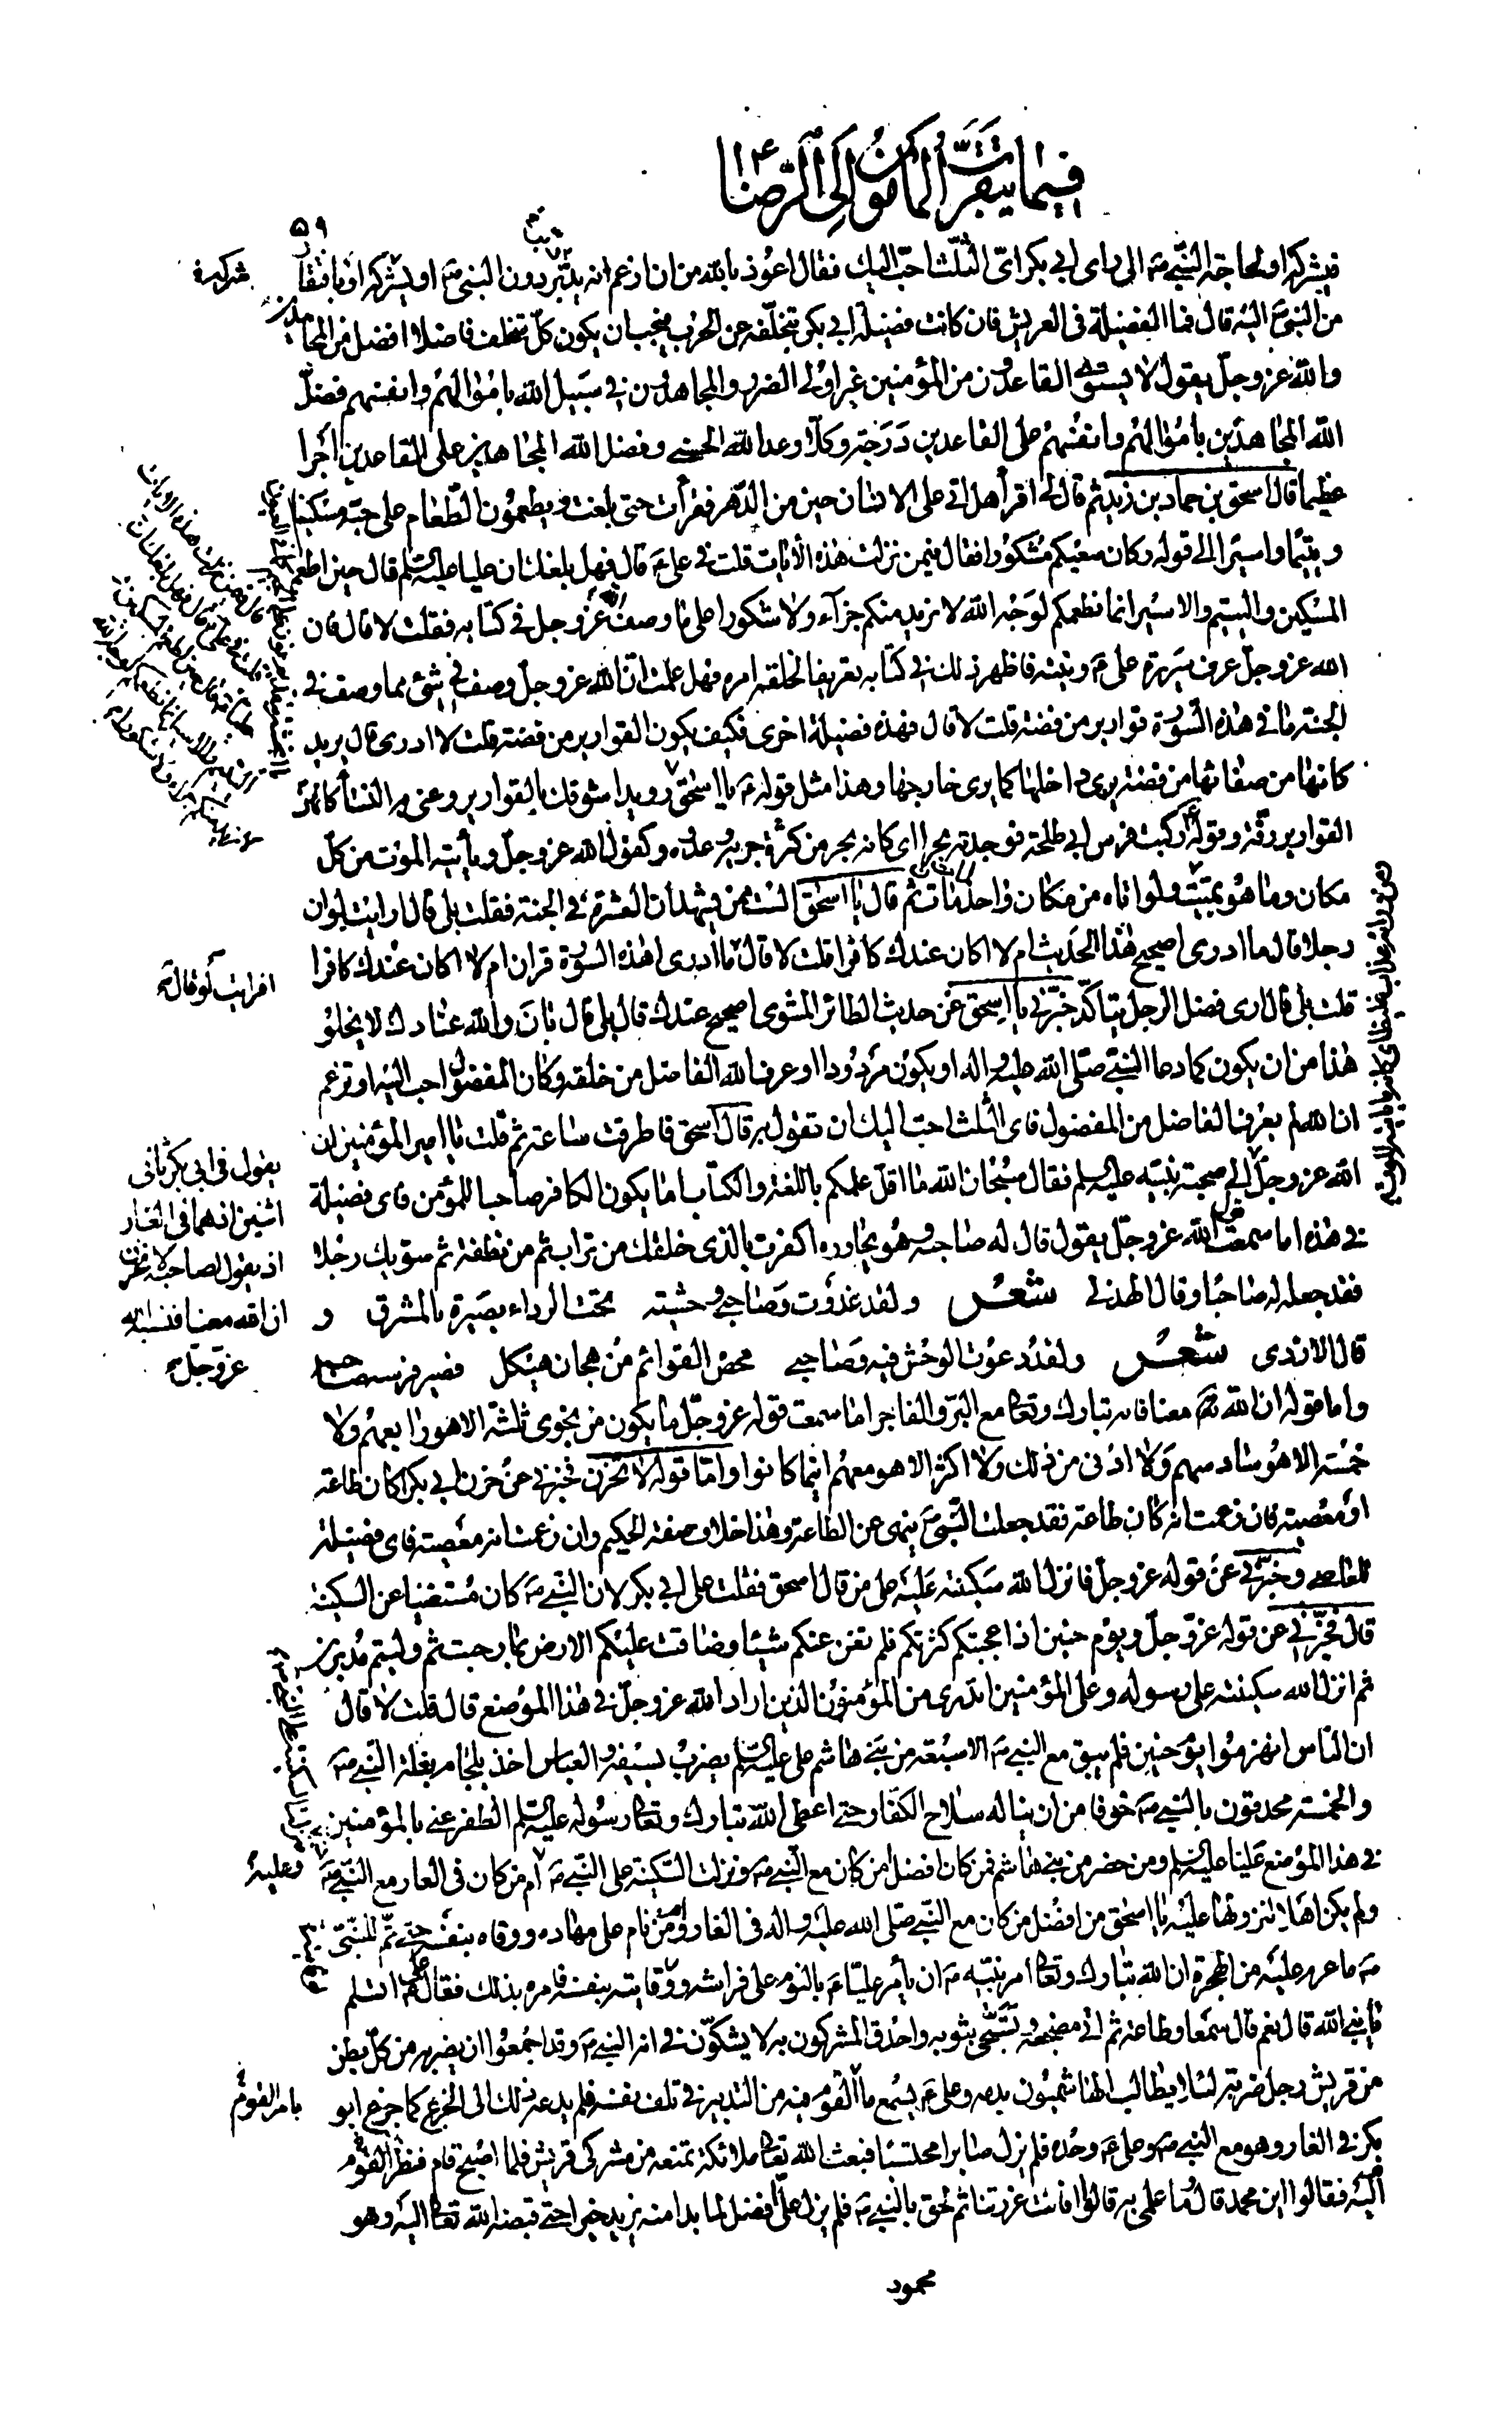 فيما يتقرب المأمون الى الرضا ١٤
٥٩
فيشركه او لحاجة النبي ص الى راى ابى بكر اىّ الثلث احبّ اليك فقال اعوذ بالله من ان ازعم انه يدبّر دون النبى ص او يشركه او بافتقار
من النبى ص اليه قال فما الفضيلة فى العريش فان كانت فضيلة ابى بكر بتخلّفه عن الحرب فيجب ان يكون كلّ متخلف فاضلا افضل من المجاهدين
والله عز وجل يقول لا يستوى القاعدون من المؤمنين غير اولى الضرر والمجاهدون فى سبيل الله باموالهم وانفسهم فضلّ
الله المجاهدين باموالهم وانفسهم على القاعدين درجة وكلّا وعد الله الحسنى وفضل الله المجاهدين على القاعدين اجرا
عظيما قال اسحق بن حماد بن زيد ثم قال لى اقرأ هل اتى على الانسان حين من الدّهر فقرأت حتى بلغت ويطعمون الطّعام على حبّه مسكينا
ويتيما واسيرا الى قوله وكان سعيكم مشكورا فقال فيمن نزلت هذه الايات قلت فى على ع قال فهل بلغك ان عليا عليه السلم قال حين اطعم
المسكين واليتيم والاسير انما نطعمكم لوجه الله لا نريد منكم جزآء ولا شكورا على ما وصف الله عز وجل فى كتابه فقلت لا قال فان
الله عز وجل عرف سريرة على ع ونيته فاظهر ذلك فى كتابه تعريفا لخلقه امره فهل علمت انّ الله عز وجل وصف فى شئ مما وصف فى
الجنة ما فى هذه السّورة قوارير من فضة قلت لا قال فهذه فضيلة اخرى فكيف يكون القوارير من فضة قلت لا ادرى قال يريد
كانها من صفائها من فضة يرى داخلها كما يرى خارجها وهذا مثل قوله ص يا اسحق رويدا سوقك بالقوارير وعنى به النساء كانهنّ
القوارير رقّة وقوله ص ركبت فرس ابى طلحة فوجدته بحرا اى كانه بحر من كثرة جريه وعدوه وكقول الله عز وجل ويأتيه الموت من كلّ
مكان وما هو بميّت ولو اتاه من مكان واحد لمات ثم قال يا اسحق الست ممن يشهد ان العشرة فى الجنة فقلت بلى قال ارايت لو ان
رجلا قال ما ادرى اصحيح هذا الحديث ام لا اكان عندك كافرا قلت لا قال ما ادرى هذه السورة قران ام لا اكان عندك كافرا
قلت بلى قال ارى فضل الرجل يتاكّد خبّرنى يا اسحق عن حديث الطائر المشوى اصحيح عندك قال بلى قال بان والله عنادك لا يخلو
هذا من ان يكون كما دعا النبى صلّى الله عليه واله او يكون مردودا او عرف الله الفاضل من خلقه وكان المفضول احب اليه او تزعم
ان الله لم يعرف الفاضل من المفضول فاى الثلث احبّ اليك ان تقول به قال اسحق فاطرقت ساعة ثم قلت يا امير المؤمنين ان
الله عز وجلّ الى صحبة نبيّه عليه السلم فقال سبحان الله ما اقل علمكم باللغة والكتاب اما يكون الكافر صاحبا للمؤمن فاى فضيلة
فى هذه اما سمعت الله عز وجل يقول قال له صاحبه وهو يحاوره اكفرت بالذى خلقك من تراب ثم من نطفة ثم سوّيك رجلا
فقد جعله له صاحبا وقال الهذلى شعر ولقد غدوت وصاحبى وحشيته تحت الرداء بصيرة بالمشرق و
قال الازدى شعر ولقد دعوت الوحش فيه وصاحبى محض القوائم من هجان هيكل فصير فرسه صاحبه
واما قوله ان الله تع معنا فانه تبارك وتعالى مع البرّ والفاجر اما سمعت قوله عز وجلّ ما يكون من نجوى ثلثة الا هو رابعهم ولا
خمسة الا هو سادسهم ولا ادنى من ذلك ولا اكثر الا هو معهم اينما كانوا وامّا قوله لا تحزن فخبرنى عن حزن ابى بكر اكان طاعة
او معصية فان زعمت انه كان طاعة فقد جعلت النّبى ص ينهى عن الطاعة وهذا خلاف صفة الحكيم وان زعمت انه معصية فاى فضيلة
للعاصى وخبّرنى عن قوله عز وجل فانزل الله سكينته عليه على من قال اسحق فقلت على ابى بكر لان النبى ص كان مستغنيا عن السكينة
قال فخبّرنى عن قوله عز وجل ويوم حنين اذ اعجبتكم كثرتكم فلم تغن عنكم شيئا وضاقت عليكم الارض بما رحبت ثم وليتم مدبرين
ثم انزل الله سكينته على رسوله وعلى المؤمنين اتدرى من المؤمنون الذين اراد الله عز وجلّ فى هذا الموضع قال قلت لا قال
ان الناس انهزموا يوم حنين فلم يبق مع النبى ص الا سبعة من بنى هاشم على عليه السلم يضرب بسيفه والعباس اخذ بلجام بغلة النبى ص
والخمسة محدقون بالنبى ص خوفا من ان يناله سلاح الكفار حتى اعطى الله تبارك وتعالى رسوله عليه السلم الظفر عنى بالمؤمنين
فى هذا الموضع عليا عليه السلم ومن حضر من بنى هاشم فمن كان افضل امن كان مع النبى ص ونزلت السّكينة على النّبى ص ام من كان فى الغار مع النبى ص
ولم يكن اهلا لنزولها عليه يا اسحق من افضل من كان مع النبى صلى الله عليه واله فى الغار او من نام على مهاده ووقاه بنفسه حتى تمّ للنبىّ
ص ما عزم عليه من الهجرة ان الله تبارك وتعالى امر نبيّه ص ان يأمر عليّا ع بالنوم على فراشه ووقايته بنفسه فامره بذلك فقال على ع اتسلم
يا نبى الله قال نعم قال سمعا وطاعة ثم اتى مضجعه وتسجّى بثوبه واحدق المشركون به لا يشكّون فى انه النبى ص وقد اجمعوا ان يضربه من كلّ بطن
من قريش رجل ضربة لئلا يطالب الهاشميون بدمه وعلى ع يسمع ما القوم فيه من التدبير فى تلف نفسه فلم يدعه ذلك الى الجزع كما جزع ابو
بكر فى الغار وهو مع النبى ص وعلى ع وحده فلم يزل صابرا محتسبا فبعث الله تعالى ملائكة تمنعه من مشركى قريش فلما اصبح قام فنظر القوم
اليه فقالوا اين محمد قال وما علمى به قالوا فانت غررتنا ثم لحق بالنبى ص فلم يزل علىّ افضل لما بدا منه يزيد خيرا حتى قبضه الله تعالى اليه وهو
محمود
شركة
افرايت لو قال
يقول فى ابى بكر ثانى
اثنين اذ هما فى الغار
اذ يقول لصاحبه لا تحزن
ان الله معنا فنسبه الله
عز وجل
وعليه
بامر القوم